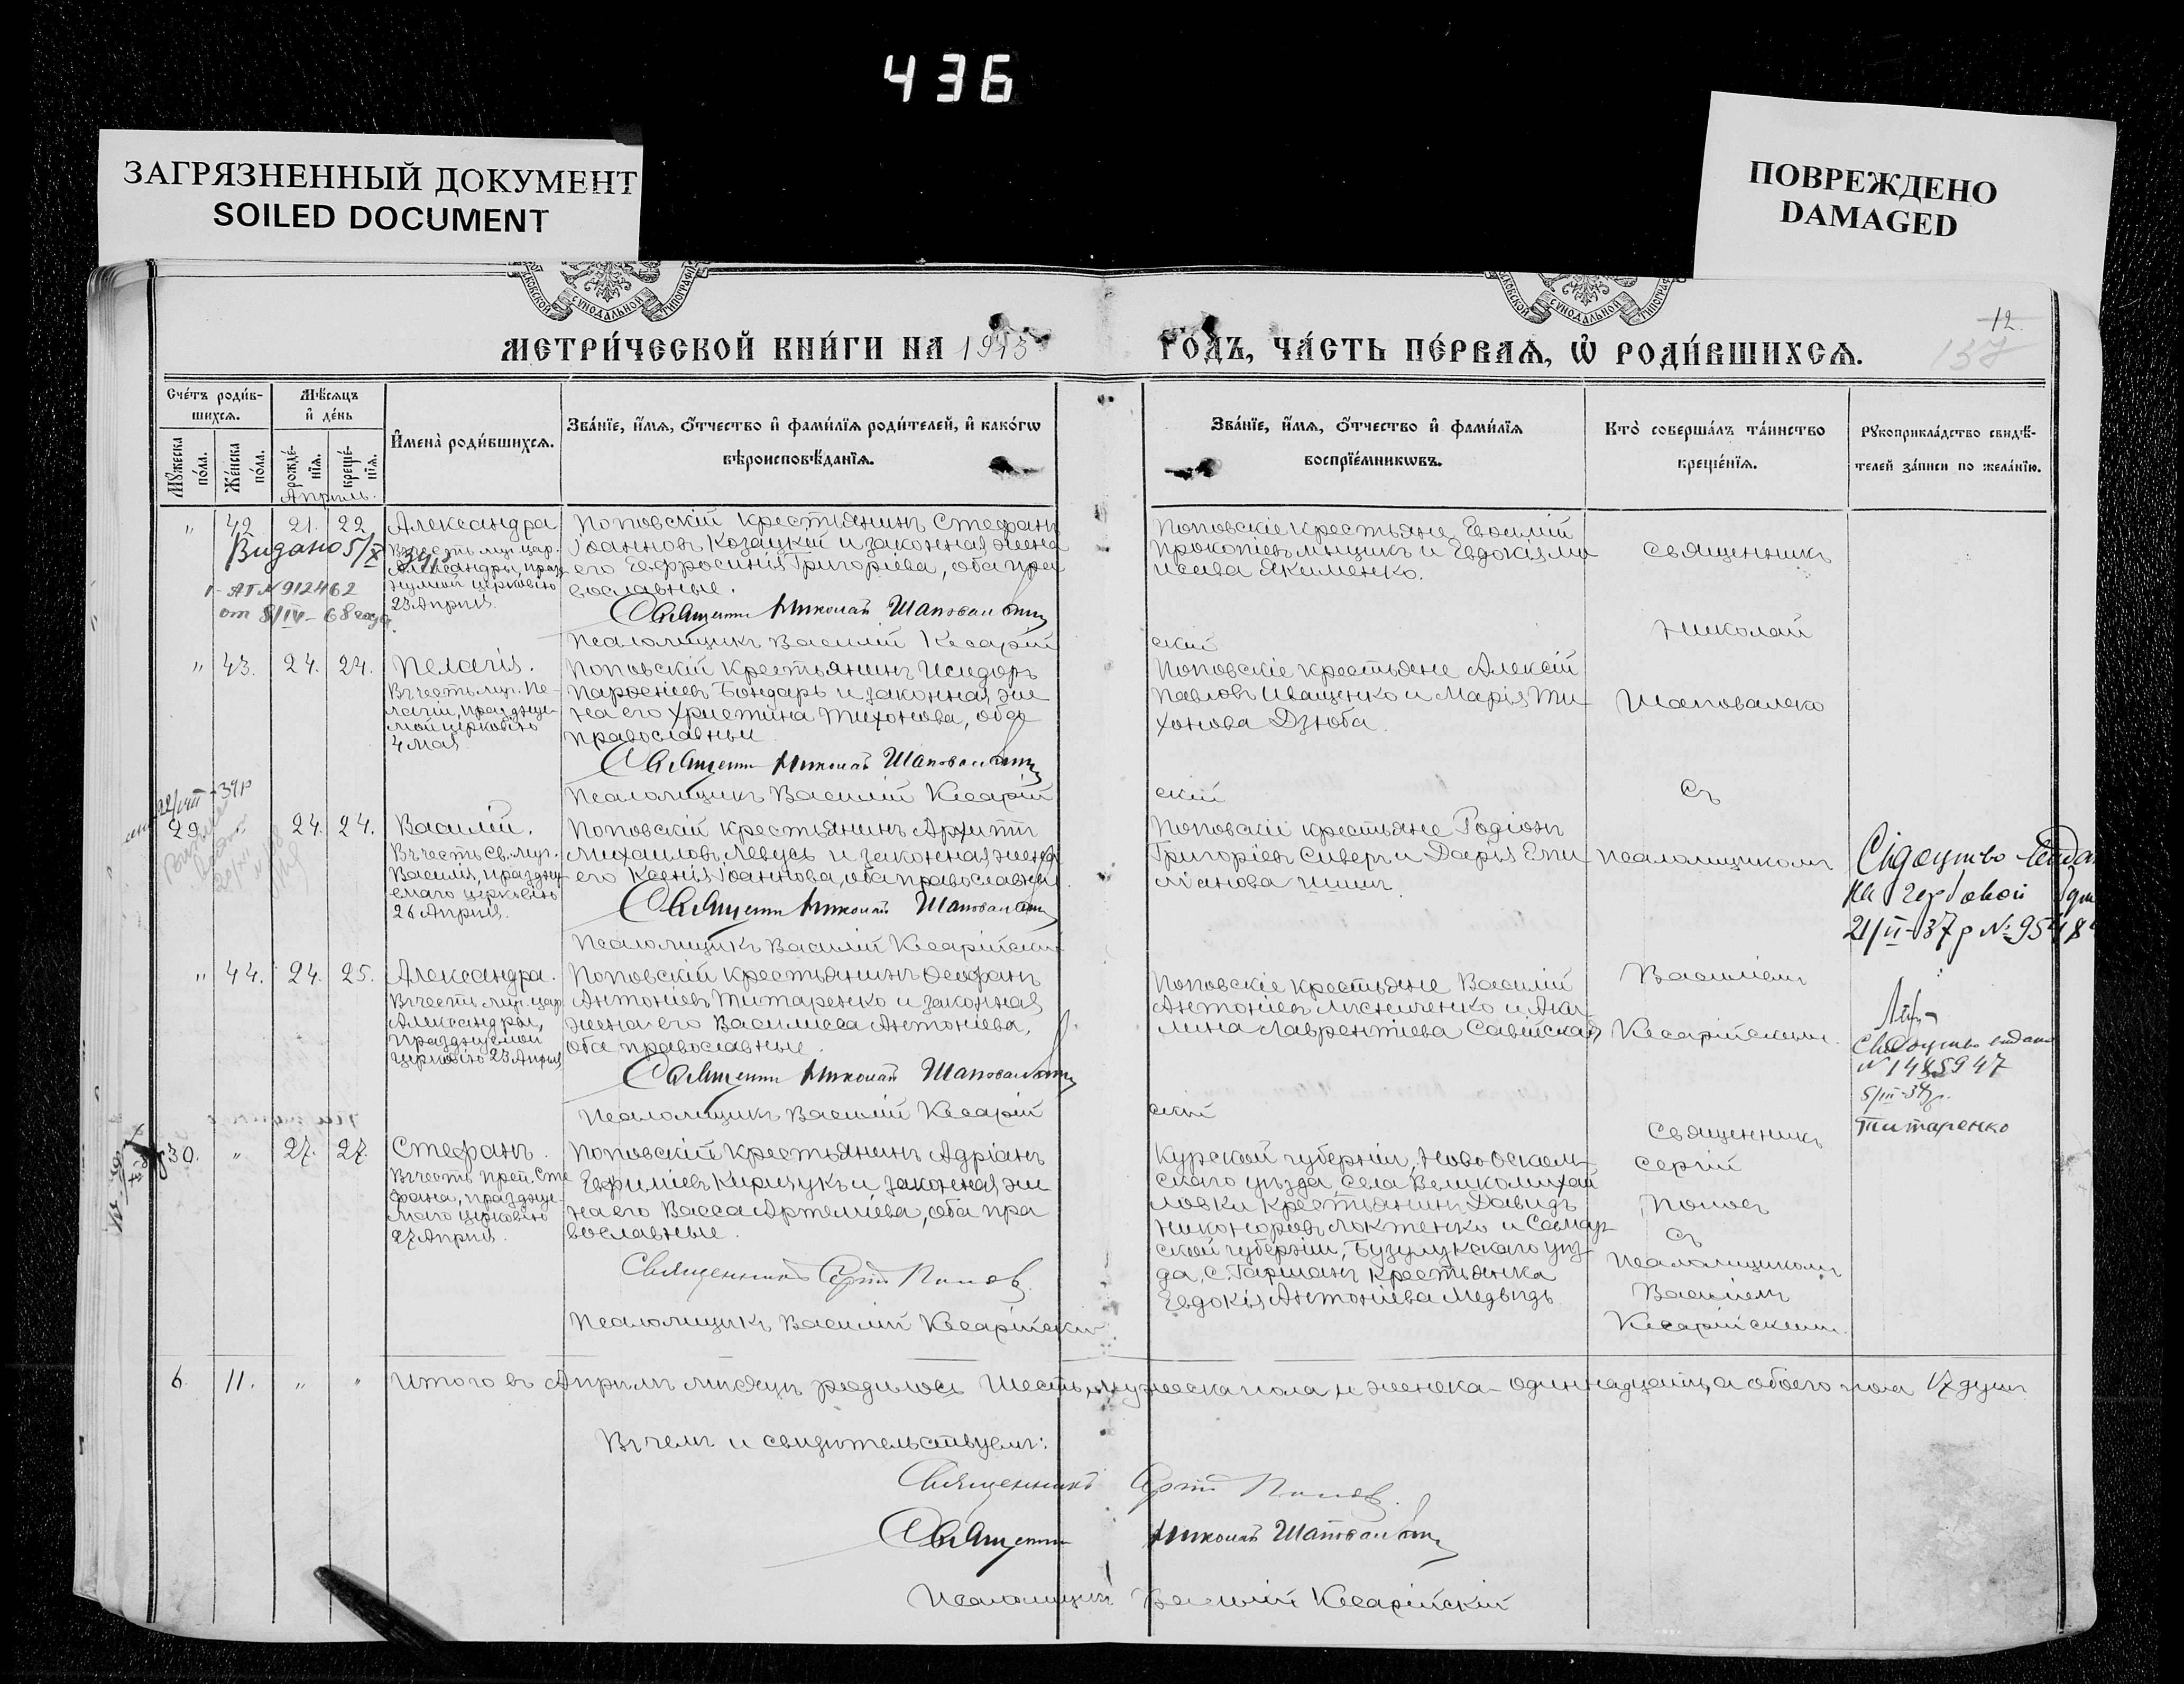 436
ЗАГРЯЗНЕННЫЙ ДОКУМЕНТ
SOILED DOCUMENT
ПОВРЕЖДЕНО
DAMAGED
12
137
МЕТРИ́ЧЕСКОЙ КНИ́ГИ НА 1913
ГО́ДЪ, ЧА́СТЬ ПЕ́РВАѦ, Ѡ҆ РОДИ́ВШИХСѦ.
Сче́тъ роди́в-
шихсѧ.
Мѣ́сѧцъ
и҆ де́нь
Мꙋ́жеска
по́ла.
Же́нска
по́ла.
рожде́-
нїѧ.
креще́-
нїѧ.
И҆мена̀ роди́вшихсѧ.
Зва́нїе, и҆́мѧ, ѻ҆́тчество и҆ фами́лїѧ роди́телей, и҆ како́гѡ
вѣроисповѣ́данїѧ.
Зва́нїе, и҆́мѧ, ѻ҆́тчество и҆ фами́лїѧ
воспрїе́мникѡвъ.
Кто̀ соверша́лъ та́инство
креще́нїѧ.
Рꙋкоприкла́дство свидѣ́-
телей за́писи по жела́нїю.
Апрель.
" 42 21. 22 Александра
Въ честь муч. цар.
Александры, празд
нуемой церковію
23 Апреля.
Видано 5/X
АГ № 912462
от 8/IV-68 года
Поповскій крестьянинъ Стефанъ
Іоанновъ Козацкій и законная жена
его Евфросинія Григоріева, оба пра
вославные.
Священникъ Николай Шаповаленко
Псаломщикъ Василій Кесарій
скій
Поповскіе крестьяне Евѳимій
Прокопіевъ
и Евдокія Мо
исеева Якименко.
Священникъ
Николай
Шаповаленко
съ
псаломщикомъ
Василіемъ
Кесарійскимъ.
" 43. 24. 24. Пелагія.
Въ честь муч. Пе-
лагіи, праздуе-
мой церковію
4 Мая
Поповскій крестьянинъ Исидоръ
Парѳеніевъ Бондарь и законная же
на его Христина Тихонова, оба
православные
Священникъ Николай Шаповаленко
Псаломщикъ Василій Кесарій
скій
Поповскіе крестьяне Алексій
Павловъ Иващенко и Марія Ти-
хонова Дзюба.
29 " 24. 24. Василій.
Въ честь Св. муч.
Василія, праздну-
емаго церковію
26 Апреля.
Поповскій крестьянинъ Архиппъ
Михаиловъ Левусь и законная жена
его Ксенія Іоаннова, оба православные.
Священникъ Николай Шаповаленко
Псаломщикъ Василій Кесарійскій
Поповскіе крестьяне Родіонъ
Григоріевъ Сиверъ и Дарія Еми
ліанова Шишъ.
на гербовой
21/II-37 р № 95484
" 44. 24. 25. Александра.
Въ честь муч. цар.
Александры,
празднуемой
церковію 23 Апреля
Поповскій крестьянинъ Ѳеофанъ
Антоніевъ Титаренко и законная
жена его Василисса Антоніева,
оба православные.
Священникъ Николай Шаповаленко
Псаломщикъ Василій Кесарій
скій
Поповскіе крестьяне Василій
Антоніевъ Лисниченко и Аки
лина Лаврентіева Савійская
№ 1485947
5/III-34р.
Титаренко
30. " 27. 27. Стефанъ.
Въ честь преп. Сте
фана, праздуе-
маго церковію
27 Апреля.
Поповскій крестьянинъ Адріанъ
Евфиміевъ Киричукъ и законная же
на его Васса Артеміева, оба пра
вославные.
Священникъ Сергій Поповъ
Псаломщикъ Василій Кесарійскій
Курской губерніи, Новооскол-
скаго уѣзда села Великомихай
ловки крестьянинъ Давидъ
Никоноровъ Локтенко и Самар-
ской губерніи, Бузулукскаго уѣз-
да, с. Гаршанъ крестьянка
Евдокія Антоніева Медвѣдь
Священникъ
Сергій
Поповъ
съ
Псаломщикомъ
Василіемъ
Кесарійскимъ.
6. 11. " " Итого въ Апрелѣ мѣсяцѣ родилось Шесть мужеска пола, и женска - одиннадцать, а обоего пола 17 душъ
Въ чемъ и свидѣтельствуемъ:
Священникъ Сергій Поповъ.
Священникъ Николай Шаповаленко
Псаломщикъ Василій Кесарійскій